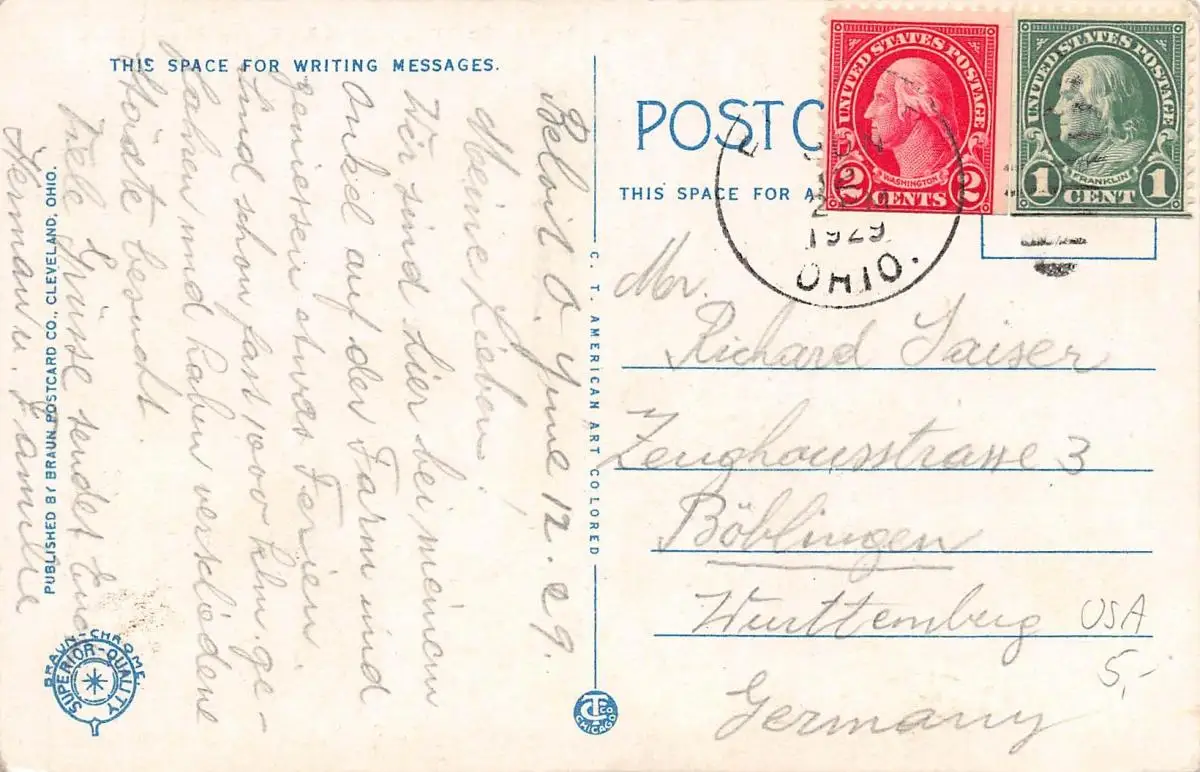 THIS SPACE FOR WRITING MESSAGES.
Beloit O. Yune 12. 29.
Meine Lieben!
Wir sind hier bei meinem
Onkel auf der Farm und
geniessen etwas Ferien.
Sind schon fast 1000 klm. ge-
fahren und haben verschiedene
Städte besucht.
Viele Grüsse sendet Euch
Hermann u. Familie
PUBLISHED BY BRAUN POSTCARD CO., CLEVELAND, OHIO.
BRAUN-CHROME.
SUPERIOR-QUALITY
C. T. AMERICAN ART COLORED
CT CO
CHICAGO
POSTC
THIS SPACE FOR A
UNITED STATES POSTAGE
WASHINGTON
2 CENTS 2
UNITED STATES POSTAGE
FRANKLIN
1 CENT 1
1929
OHIO.
Mr.
Richard Saiser
Zeughausstrasse 3
Böblingen
Württemberg
Germany
USA
5,-